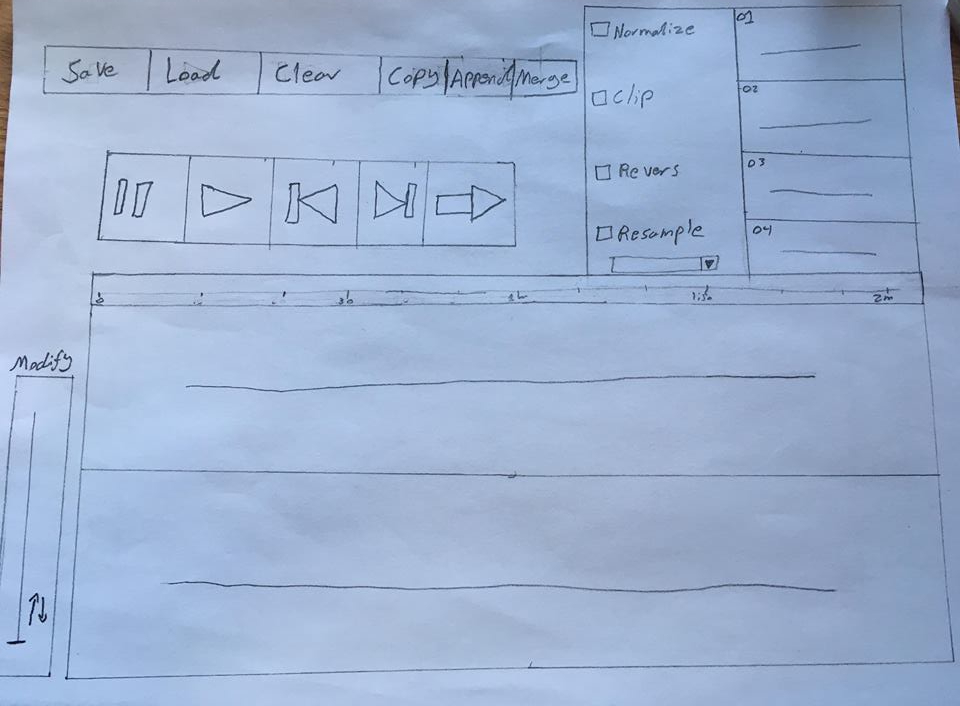 Save Load Clear Copy Append Merge
Normalize
Clip
Revers
Resample
01
02
03
04
0 30 1:30 2m
Modify